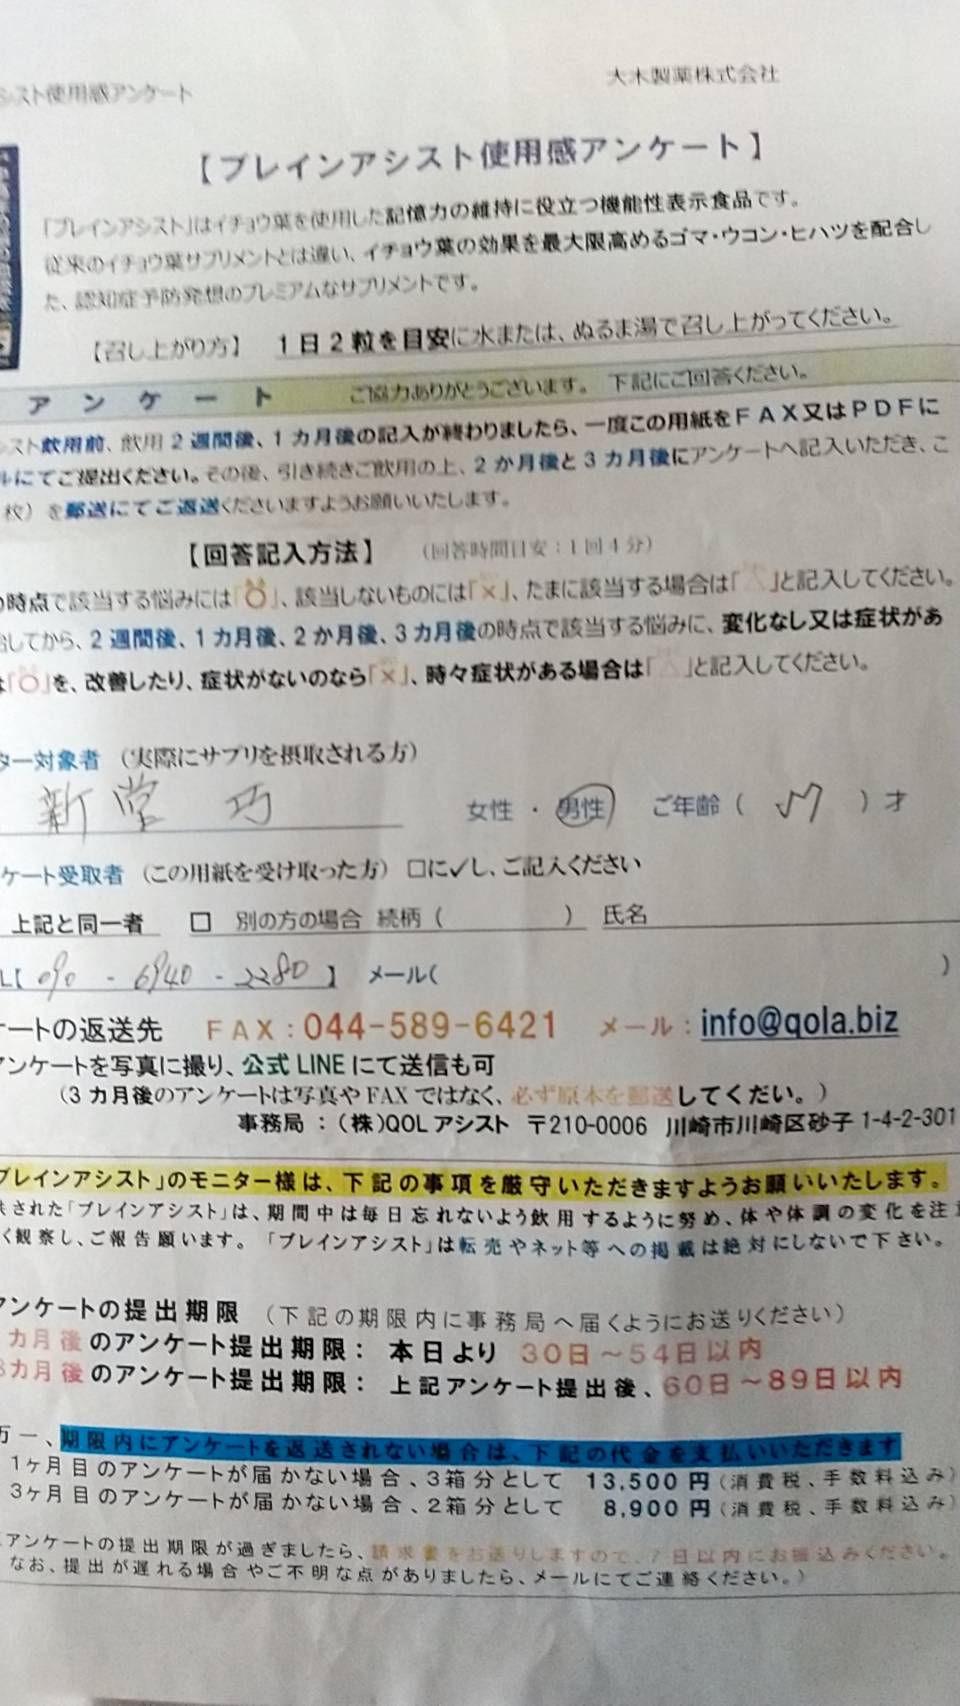 シスト使用感アンケート
大木製薬株式会社
【ブレインアシスト使用感アンケート】
「ブレインアシスト」はイチョウ葉を使用した記憶力の維持に役立つ機能性表示食品です。
従来のイチョウ葉サプリメントとは違い、イチョウ葉の効果を最大限高めるゴマ・ウコン・ヒハツを配合し
た、認知症予防発想のプレミアムなサプリメントです。
【召し上がり方】 1日2粒を目安に水または、ぬるま湯で召し上がってください。
アンケート ご協力ありがとうございます。 下記にご回答ください。
シスト飲用前、飲用2週間後、1カ月後の記入が終わりましたら、一度この用紙をFAX又はPDFに
ルにてご提出ください。その後、引き続きご飲用の上、2か月後と3カ月後にアンケートへ記入いただき、こ
枚）を郵送にてご返送くださいますようお願いいたします。
【回答記入方法】 （回答時間目安：1回4分）
の時点で該当する悩みには「○」、該当しないものには「×」、たまに該当する場合は「△」と記入してください。
始してから、2週間後、1カ月後、2か月後、3カ月後の時点で該当する悩みに、変化なし又は症状があ
は「○」を、改善したり、症状がないのなら「×」、時々症状がある場合は「△」と記入してください。
ター対象者 （実際にサプリを摂取される方）
新堂 巧 女性 ・ 男性 ご年齢（ ）才
ケート受取者 （この用紙を受け取った方） □に✓し、ご記入ください
上記と同一者 □ 別の方の場合 続柄（ ） 氏名
L【090 - 6940 - 2280】 メール( )
ケートの返送先 FAX：044-589-6421 メール：info@qola.biz
アンケートを写真に撮り、公式LINEにて送信も可
（3カ月後のアンケートは写真やFAXではなく、必ず原本を郵送してくだい。）
事務局 ：（株）QOLアシスト 〒210-0006 川崎市川崎区砂子1-4-2-301
ブレインアシスト」のモニター様は、下記の事項を厳守いただきますようお願いいたします。
供された「ブレインアシスト」は、期間中は毎日忘れないよう飲用するように努め、体や体調の変化を注
く観察し、ご報告願います。「ブレインアシスト」は転売やネット等への掲載は絶対にしないで下さい。
アンケートの提出期限 （下記の期限内に事務局へ届くようにお送りください）
カ月後のアンケート提出期限： 本日より 30日～54日以内
3カ月後のアンケート提出期限： 上記アンケート提出後、60日～89日以内
万一、期限内にアンケートを返送されない場合は、下記の代金を支払いいただきます
1ヶ月目のアンケートが届かない場合、3箱分として 13,500円（消費税、手数料込み）
3ヶ月目のアンケートが届かない場合、2箱分として 8,900円（消費税、手数料込み）
アンケートの提出期限が過ぎましたら、請求書をお送りしますので、7日以内にお振込みください。
なお、提出が遅れる場合やご不明な点がありましたら、メールにてご連絡ください。）